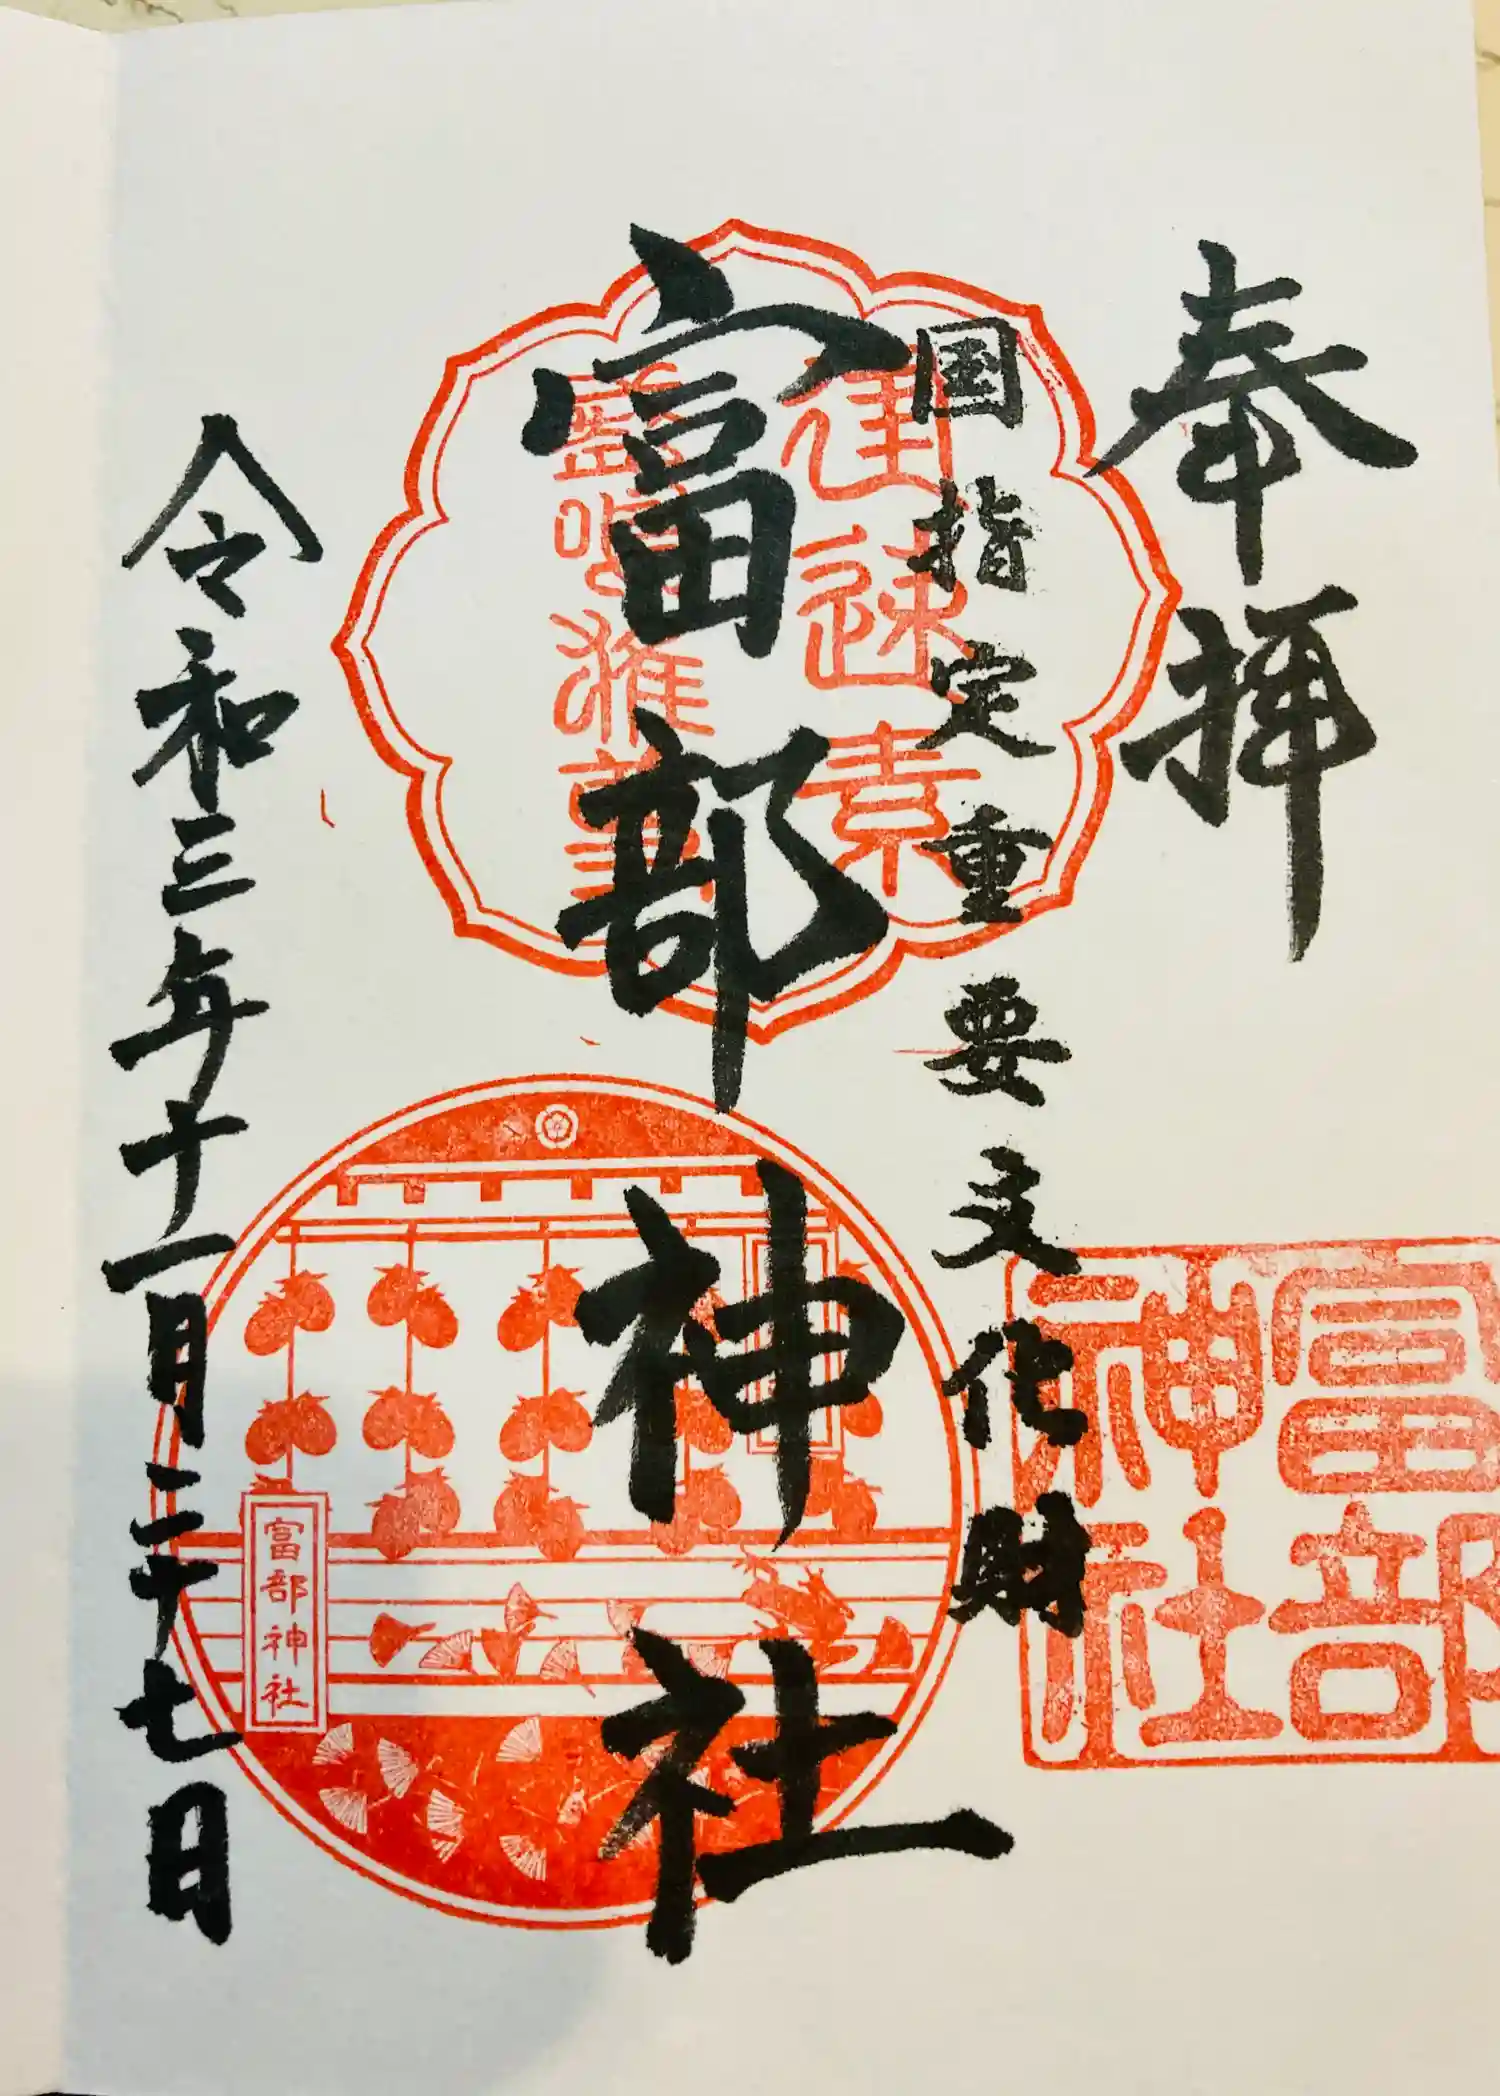 奉拝
富部
神社
国指定重要文化財
富部神社
建速素
富部神社
令和三年十一月二十七日